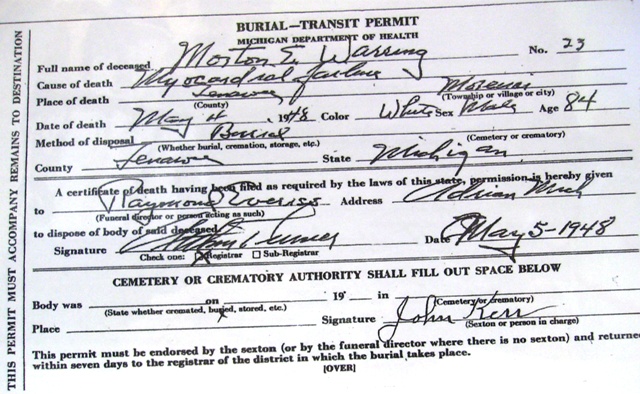 BURIAL—TRANSIT PERMIT
MICHIGAN DEPARTMENT OF HEALTH
No. 23
Full name of deceased Morton E. Warring
Cause of death Myocardial failure
Place of death Lenawee Morenci
(County) (Township or village or city)
Date of death May 4, 1948 Color White Sex Male Age 84
Method of disposal Burial
(Whether burial, cremation, storage, etc.) (Cemetery or crematory)
County Lenawee State Michigan
A certificate of death having been filed as required by the laws of this state, permission is hereby given
to Raymond Address Adrian Mich
(Funeral director or person acting as such)
to dispose of body of said deceased
Signature Date May 5-1948
Check one: ☒ Registrar ☐ Sub-Registrar
CEMETERY OR CREMATORY AUTHORITY SHALL FILL OUT SPACE BELOW
Body was on 19 in
(State whether cremated, buried, stored, etc.) (Cemetery or crematory)
Place Signature John Kerr
(Sexton or person in charge)
This permit must be endorsed by the sexton (or by the funeral director where there is no sexton) and returne
within seven days to the registrar of the district in which the burial takes place.
[OVER]
THIS PERMIT MUST ACCOMPANY REMAINS TO DESTINATION